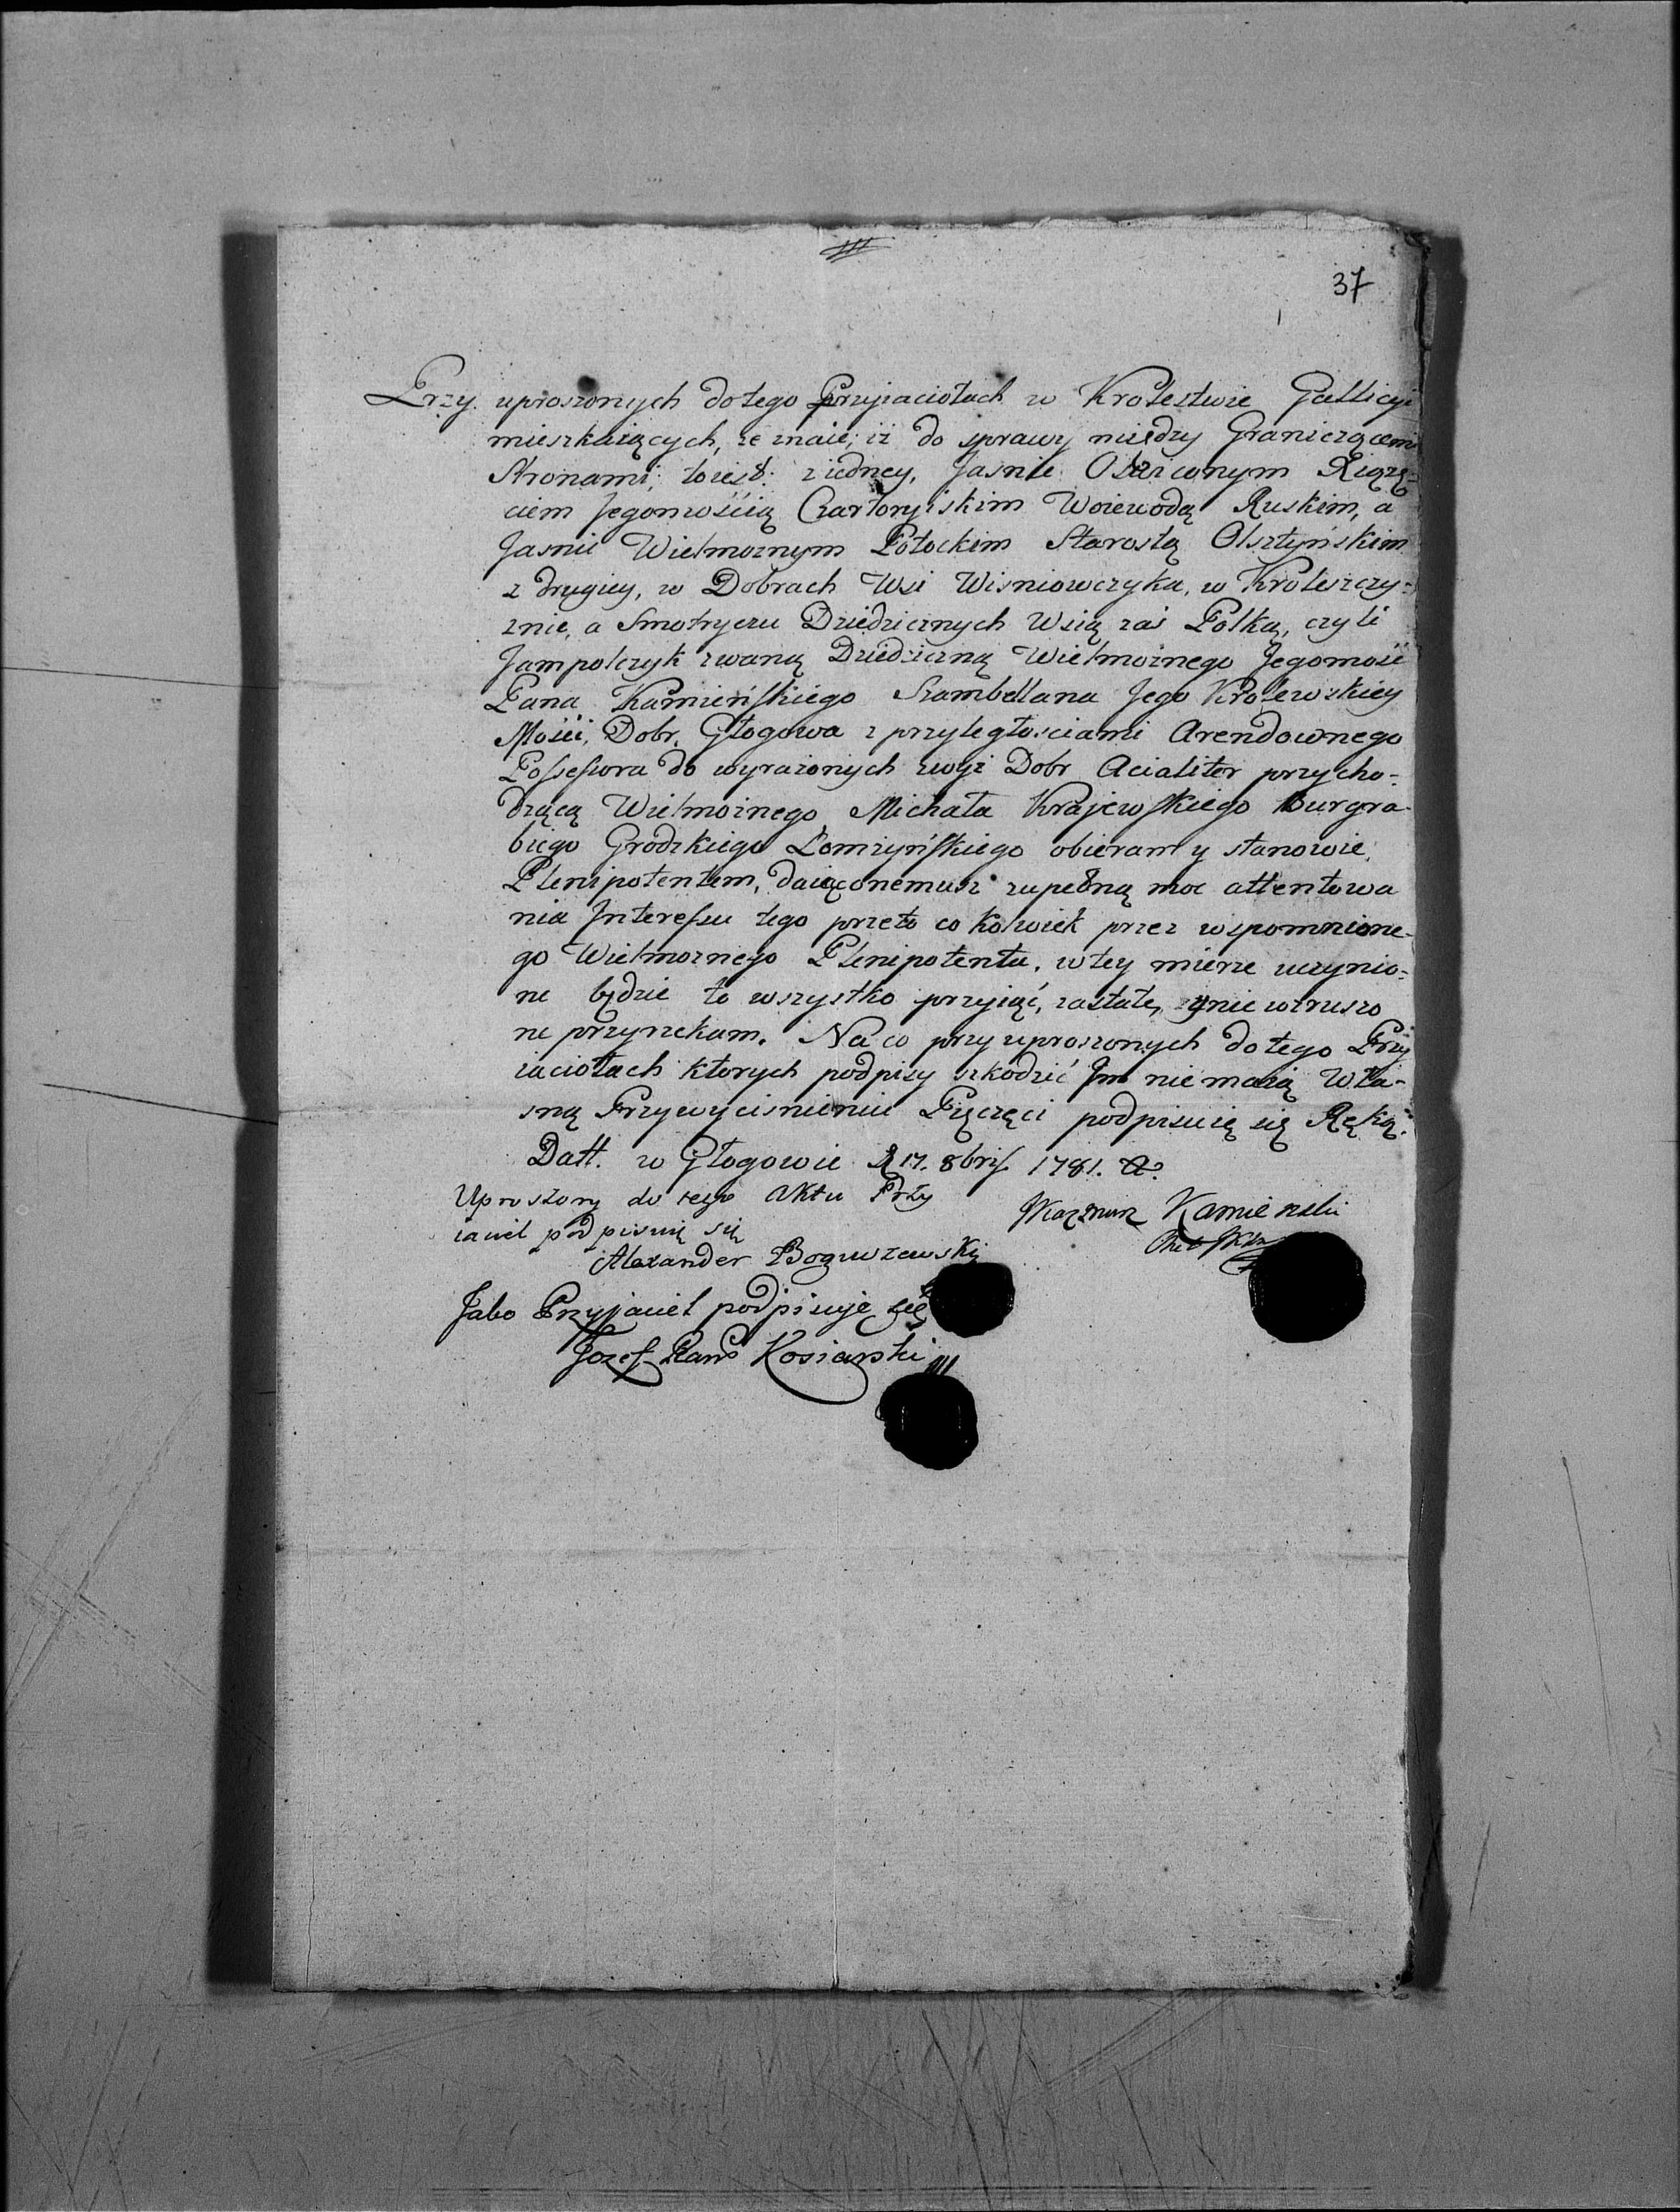 37
Przy uproszonych do tego Przyiaciołach w Krolestwie Gallicyi
mieszkaiących, ze znaię, iż do sprawy między Graniczącemi
Stronami; to iest: z iedney, Jasnie Oświconym Xiążę-
ciem Jegomością Czartoryiskim Woiewodą Ruskim, a
Jasnie Wielmoznym Potockim Starostą Olsztyńskim
z drugiey, w Dobrach Wsi Wisniowczyka, w Kroleszczy-
znie, a Smotryczu Dziedzicznych Wsią zaś Polką, czyli
Jampolczyk zwaną Dziedziczną Wielmożnego Jegomość
Pana Kamieńskiego Szambellana Jego Krolewskiey
Mości, Dobr, Głogowa z przyległościami Arendownego
Possessora do wyrażonych zwyż Dobr Acialiter przycho-
dzącą Wielmożnego Michała Krajewskiego Burgra-
biego Grodzkiego Łomżyńskiego obieram y stanowię,
Plenipotentem, daiąc onemusz zupełną moc attentowa
nia Interessu tego przeto co kolwiek przez wspomnione-
go Wielmoznego Plenipotenta, w tey mierze uczynio-
ne będzie to wszystko przyiąć, zastałe, y nie wzruszo
ne przyrzekam. Na co przy uproszonych do tego Przy
iaciołach ktorych podpisy szkodzić Im nie maią Wła-
sną Przy wyciśnieniu Pięczęci podpisuię się Ręką.
Datt. w Głogowie D 17. 8bris 1781. A°
Uproszony do tego Aktu Przy
iaciel podpisuię się
Alexander Boguszewski
Kazmirz Kamienski
Jako Przyjaciel podpisuje się
Jozef Kosiarski